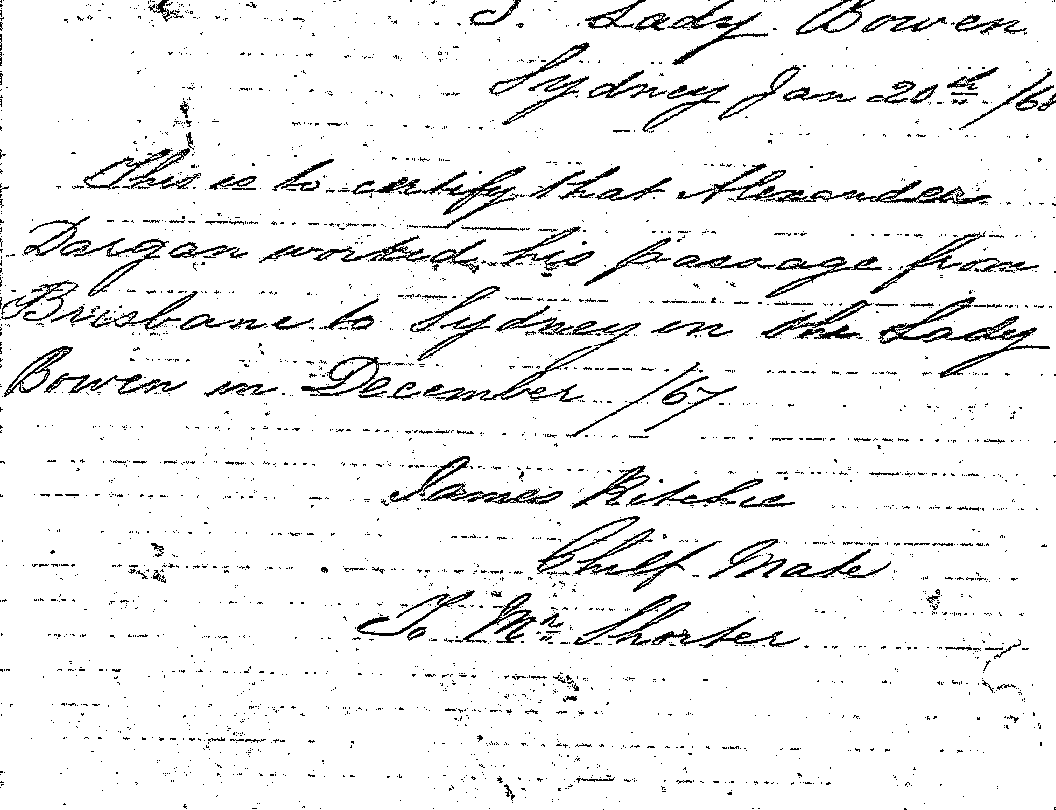 S. Lady Bowen
Sydney Jan 20th /68
This is to certify that Alexander
Dargan worked his passage from
Brisbane to Sydney in the Lady
Bowen in December /67
James Ritchie
Chief Mate
To Mr Shorter